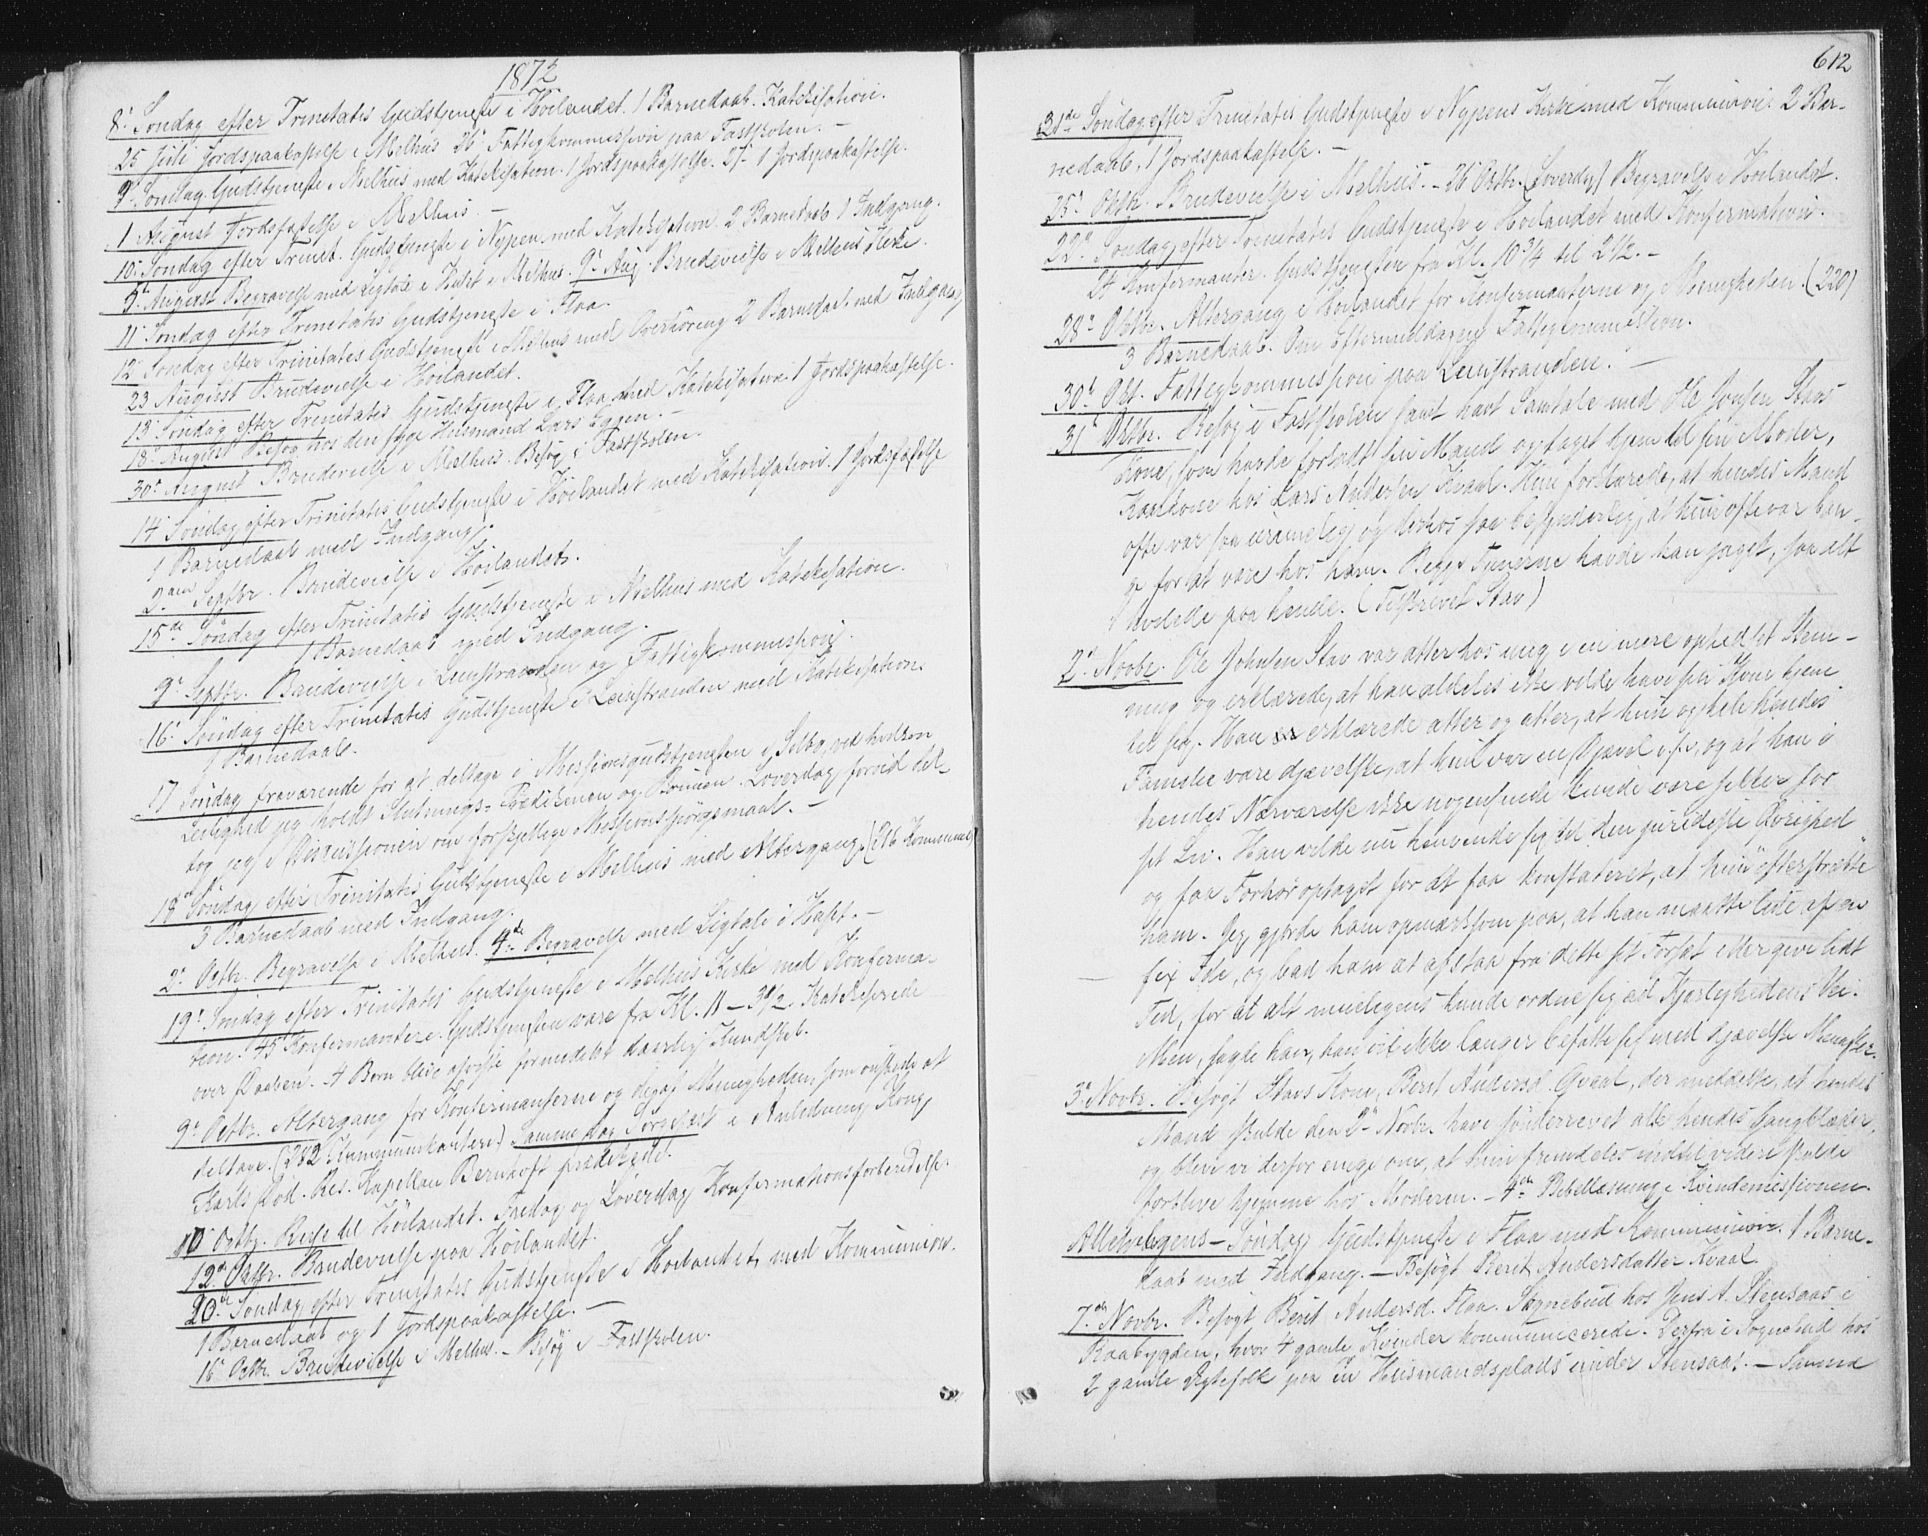 1872
8de Søndag efter Trinitatis Gudstjeneste i Höilandet. 1 Barnedaab. Katekisation.
25 Juli Jordspaakastelse i Melhus 26de Fattigkommission paa Fastskolen. —
9de Søndag Gudstjeneste i Melhus med Katekisation. 1 Jordspaakastelse. 27de 1 Jordspaakastelse.
1 August Jordsfæstelse i Melhus. —
10de Søndag efter Trinit. Gudstjeneste i Nypen med Katekisation. 2 Barnedaab 1 Indgang.
5te August Begravelse med Ligtale i Huset i Melhus. 9de Aug. Brudevielse i Melhus Kirke.
11te Søndag efter Trinitatis Gudstjeneste i Flaa.
12te Søndag efter Trinitatis Gudstjeneste i Melhus med Overhöring 2 Barnedaab med Indgang
23 August Brudevielse i Höilandet.
13de Søndag efter Trinitatis Gudstjeneste i Flaa med Katekisation 1 Jordspaakastelse.
18de August Besøg hos den syge Husmand Lars Eggen. —
30te August Brudevielse i Melhus. Besøg i Fastskolen.
14de Søndag efter Trinitatis Gudstjeneste i Höilandet med Katekisation. 1 Jordsfæstelse
1 Barnedaab med Indgang.
Septbr. Brudevielse i Höilandet.
15de Søndag efter Trinitatis Gudstjeneste i Melhus med Katekisation.
1 Barnedaab med Indgang.
9de Septbr. Brudevielse i Leinstranden og Fattigkommission.
16de Søndag efter Trinitatis Gudstjeneste i Leinstranden med Katekisation.
1 Barnedaab.
17 Søndag fraværende for at deltage i Missionsgudstjenesten i Selbo, ved hvilken
Leilighed jeg holdt Slutnings-Prædikenen og Bönnen. Löverdag forvid del-
tog jeg i Diskussionen om forskjellige Missionsspörgsmaal. —
18de Søndag efter Trinitatis Gudstjeneste i Melhus med Altergang. (216 Kommunik.)
3 Barnedaab med Indgang.
2de Octbr. Begravelse i Melhus. 4de Begravelse med Ligtale i Huset. —
19de Søndag efter Trinitatis Gudstjeneste i Melhus Kirke med Konferma-
tion. 45 Konfermantere. Gudstjenesten vare fra Kl. 11 – 3½. Katekiserede
over Daaben. 4 Börn blive afviste formedelst daarlig Kundskab.
9de Octbr. Altergang for Konfermanterne og de af Menigheden, som önskede at
deltage. (282 Kommunikantere) Samme Dag Sörgefest i Anledning Kong
Karls Död. Res. Kapellan Bernhoft prædikede.
10 Octbr. Reise til Höilandet. Fredag og Löverdag Konfirmationsforberedelse.
12te Octbr. Brudevielse paa Höilandet.
20de Søndag efter Trinitatis Gudstjeneste i Höilandet, med Kommunion.
1 Barnedaab og 1 Jordspaakastelse. —
16de Octbr. Brudevielse i Melhus. – Besøg i Fastskolen.
612
21de Søndag efter Trinitatis Gudstjeneste i Nypens Kirke med Kommunion. 2 Bar-
nedaab, 1 Jordspaakastelse. —
25de Oktbr. Brudevielse i Melhus. – 26de Octbr. (Loverdag) Begravelse i Höilandet.
22de Søndag efter Trinitatis Gudstjeneste i Höilandet med Konfermation.
24 Konfermanter. Gudstjenesten fra Kl. 10¾ til 2½. —
28de Oktbr. Altergang i Höilandet for Konfermanterne og Menigheden. (220)
3 Barnedaab. Om Eftermiddagen Fattigkommission.
30te Oct. Fattigkommission paa Leinstranden. —
31te Oktbr. Besøg i Fastskolen samt havt Samtale med Ole Jonsen Stavs
Kone, som havde forladt sin Mand og taget hjem til sin Moder,
Kaarkone hos Lars Andersen Kvaal. Hun forklarede, at hendes Mand
ofte var saa urimelig og derhos saa besynderlig, at hun ofte var ban-
ge for at være hos ham. Begge Tuenerne havde han jaget, saa alt
hvilede paa hende. (Tilskrevet Stav)
2de Novbr. Ole Johnsen Stav var atter hos mig i en mere ophedset Stem-
ning og erklærede, at han aldeles ikke vilde have sin Kone hjem
til sig. Han erklærede atter og atter, at hun og hele hendes
Familie vare djævelske, at hun var en Djævel osv., og at han i
hendes Nærværelse ikke nogensinde kunde være sikker for
sit Liv. Han vilde nu henvende sig til den juridiske Øvrighed
og faa Forhör optaget for at faa konstateret, at hun "efterstræbte"
ham. Jeg gjorde ham opmærksom paa, at han maatte lide af en
fix Ide, og bad ham at afstaa fra dette sit Forsæt eller give lidt
Tid, for at alt muligens kunde ordne sig ad Kjærlighedens Vei.
Men, sagde han, han vil ikke længer befatte sig med djævelske Mennesker.
3de Novbr. Besøgt Stavs Kone, Berit Andersd. Qvaal, der meddelte, at hendes
Mand skulde den 2de Novbr. have sönderrevet alle hendes Gangklæder,
og bleve vi derfor enige om, at hun fremdeles indtil videre skulde
forblive hjemme hos Moderen. – 4de Bibellæsning i Kvindemissionen.
Allehelgens-Søndag Gudstjeneste i Flaa med Kommunion. 1 Barne-
daab med Indgang. – Besøgt Berit Andersdatter Kvaal.
7de Novbr. Besøgt Berit Andersd. Flaa. Sognebud hos Jens A. Stensaas i
Raabygden, hvor 4 gamle Kvinder kommunicerede. Derfra i Sognebud hos
2 gamle Ægtefolk paa en Husmandsplads under Stensaas. – Samme